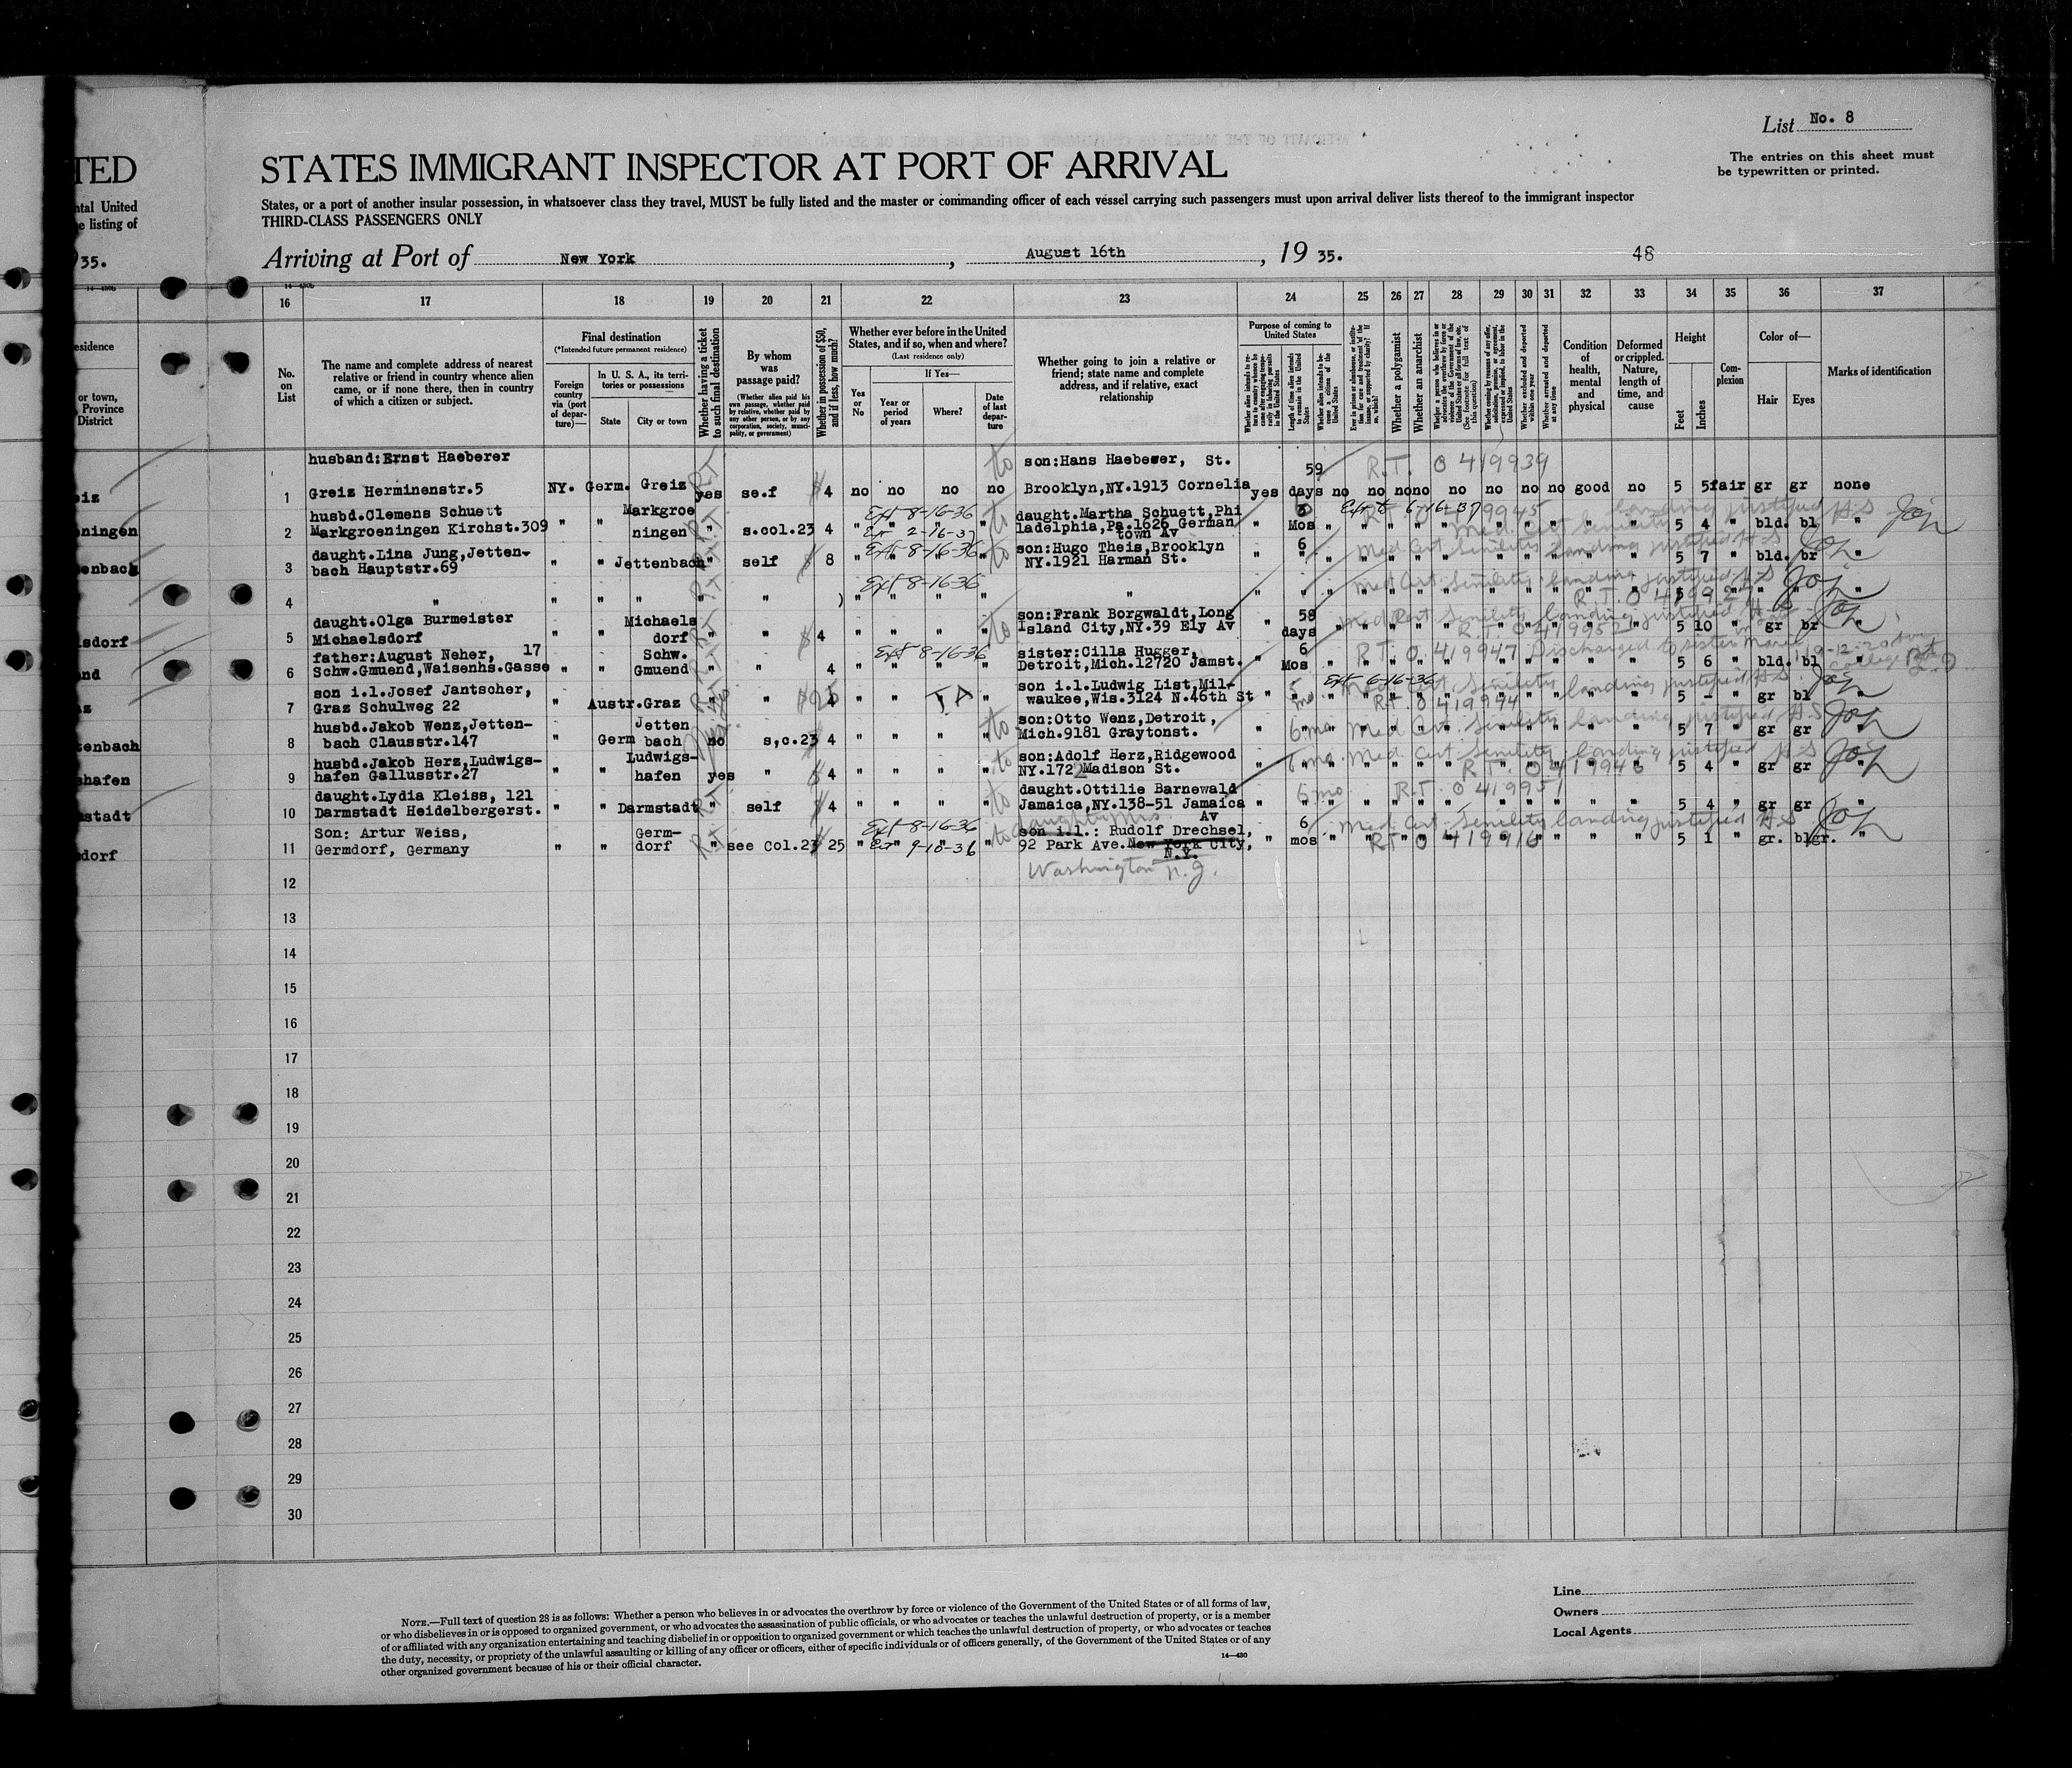 List No. 8
The entries on this sheet must
be typewritten or printed.
TED
STATES IMMIGRANT INSPECTOR AT PORT OF ARRIVAL
ntal United
e listing of
States, or a port of another insular possession, in whatsoever class they travel, MUST be fully listed and the master or commanding officer of each vessel carrying such passengers must upon arrival deliver lists thereof to the immigrant inspector
THIRD-CLASS PASSENGERS ONLY
35.
Arriving at Port of New York, August 16th, 19 35.
48
16 17 18 19 20 21 22 23 24 25 26 27 28 29 30 31 32 33 34 35 36 37
esidence
or town,
Province
District
No. on List
The name and complete address of nearest
relative or friend in country whence alien
came, or if none there, then in country
of which a citizen or subject.
Final destination
(*Intended future permanent residence)
Foreign country via (port of departure)—
In U. S. A., its territories or possessions
State
City or town
Whether having a ticket to such final destination
By whom was passage paid?
(Whether alien paid his own passage, whether paid by relative, whether paid by any other person, or by any corporation, society, municipality, or government)
Whether in possession of $50, and if less, how much?
Whether ever before in the United States, and if so, when and where?
(Last residence only)
If Yes—
Yes or No
Year or period of years
Where?
Date of last departure
Whether going to join a relative or
friend; state name and complete
address, and if relative, exact
relationship
Purpose of coming to United States
Length of time alien intends to remain in the United States
Whether a polygamist
Whether an anarchist
Condition of health, mental and physical
Deformed or crippled. Nature, length of time, and cause
Height
Feet
Inches
Complexion
Color of—
Hair
Eyes
Marks of identification
husband:Ernst Haeberer son:Hans Haeberer, St. 59 R.T. 0 419939
1 Greiz Herminenstr.5 NY. Germ. Greiz yes se.f $4 no no no no Brooklyn,NY.1913 Cornelia yes days no no no no no no no no good no 5 5 fair gr gr none
husbd.Clemens Schuett Markgroe Ext 8-16-36 daught.Martha Schuett,Phi
2 Markgroeningen Kirchst.309 " " ningen " s.col.23 4 Ext 2-16-37 ladelphia,Pa.1626 German Mos 5 4 " bld. bl "
town Av
daught.Lina Jung,Jetten- Ext 8-16-36 son:Hugo Theis,Brooklyn 6 Med Cert. Senility landing justified H S
3 bach Hauptstr.69 " " Jettenbach " self $8 NY.1921 Harman St. 5 7 " bld. br "
Ext 8-16-36 Med Cert. Senility landing justified H S
4 " " " " " "
daught.Olga Burmeister Michaels son:Frank Borgwaldt,Long 59 Med Cert Senility landing justified H S
5 Michaelsdorf " " dorf " " $4 Island City,NY.39 Ely Av " days 5 10 " gr br "
father:August Neher, 17 Schw. Ext 8-16-36 sister:Cilla Hugger, 6 R.T. 0 419947 Discharged to sister
6 Schw.Gmuend,Waisenhs.Gasse " " Gmuend " " 4 Detroit,Mich.12720 Jamst. " Mos 5 6 " bld. bl "
son i.l.Josef Jantscher, son i.l.Ludwig List,Mil- Ext 6-16-36 Med Cert. Senility landing justified H S
7 Graz Schulweg 22 " Austr.Graz " " waukee,Wis.3124 N.46th St " R.T. 0 419944 5 - " gr bl
husbd.Jakob Wenz,Jetten- Jetten son:Otto Wenz,Detroit,
8 bach Clausstr.147 " Germ bach no s,c.23 4 Mich.9181 Graytonst. " 6 mo Med Cert. Senility landing justified H.S 5 7 " gr gr "
husbd.Jakob Herz,Ludwigs- Ludwigs- son:Adolf Herz,Ridgewood
9 hafen Gallusstr.27 " " hafen yes " $4 NY.1722 Madison St. " 6 mo Med. Cert. Senility landing justified H S R.T. 0 419946 5 4 " gr gr "
daught.Lydia Kleiss, 121 daught.Ottilie Barnewald 6 mo R.T. 0 419951
10 Darmstadt Heidelbergerst. " " Darmstadt " self $4 Jamaica,NY.138-51 Jamaica " 5 4 " gr gr "
Av
Son: Artur Weiss, Germ- Ext 8-16-36 son i.l.: Rudolf Drechsel, 6 Med Cert. Senility landing justified H S
11 Germdorf, Germany " " dorf " see Col.23 $25 Ext 9-10-36 92 Park Ave.New York City, " mos R T 0 419916 5 1 " gr. blgr. "
N.Y.
12 Washington N.J.
13
14
15
16
17
18
19
20
21
22
23
24
25
26
27
28
29
30
Line
Owners
Local Agents
NOTE.—Full text of question 28 is as follows: Whether a person who believes in or advocates the overthrow by force or violence of the Government of the United States or of all forms of law,
or who disbelieves in or is opposed to organized government, or who advocates the assassination of public officials, or who advocates or teaches the unlawful destruction of property, or is a member
of or affiliated with any organization entertaining and teaching disbelief in or opposition to organized government or which teaches the unlawful destruction of property, or who advocates or teaches
the duty, necessity, or propriety of the unlawful assaulting or killing of any officer or officers, either of specific individuals or of officers generally, of the Government of the United States or of any
other organized government because of his or their official character.
14—430